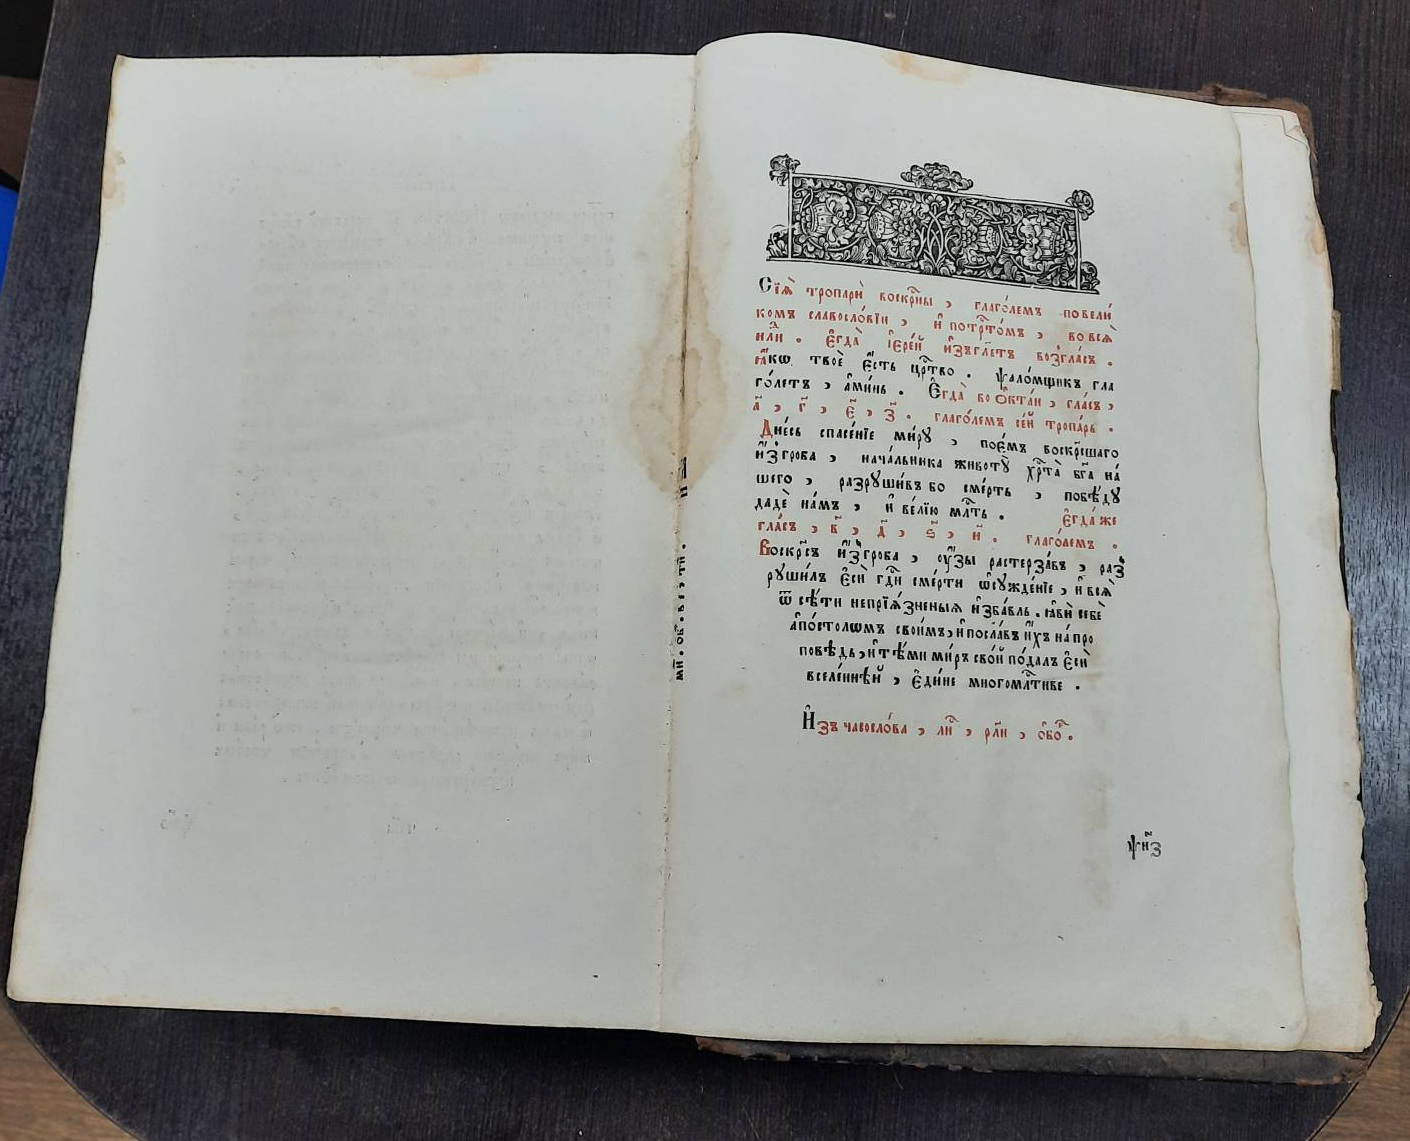 Сїѧ̀ тропарѝ воскр҃ны , глаго́лемъ по вели́
комъ славосло́вїи , и҆ по трⷭ҇то́мъ , во всѧ̀
нлⷣи . Е҆гда̀ і҆ере́й и҆зъгл҃етъ во́зглас .
Ꙗ҆́кѡ твоѐ е҆́сть црⷭ҇тво . Ѱало́мщикъ гла
го́летъ , а҆ми́нь . Е҆гда̀ во О҆кта́и , гла́съ ,
а҃ , г҃ , є҃ , з҃ . глаго́лемъ се́й тропа́рь .
Дне́сь спасе́нїе ми́рꙋ , пое́мъ воскр҃сшаго
и҆з̾ гроба , нача́льника животꙋ̀ хрⷭ҇та̀ бг҃а на́
шего , разрꙋши́въ бо сме́рть , побѣ́дꙋ
дадѐ на́мъ , и҆ ве́лїю млⷭ҇ть . Е҆гда́ же
гла́съ , в҃ , д҃ , ѕ҃ , и҃ . глаго́лемъ .
Воскр҃съ и҆з̾ гроба , оу҆́зы растерза́въ , раз̾
рꙋши́лъ е҆сѝ гдⷭ҇и сме́рти ѡ҆сꙋжде́нїе , и҆ всѧ̀
ѿ сѣ́ти непрїѧ́зненыѧ и҆зба́вль . ꙗ҆ви́и себѐ
а҆по́столѡмъ свои́мъ , и҆ посла́въ и҆́хъ на́ про
повѣдь , и҆ тѣ́ми ми́ръ сво́й пода́лъ е҆сѝ
вселе́ннѣй , е҆ди́не многомлⷭ҇тиве .
И҆зъ часосло́ва , ли́ⷭ , рл҃и , ѻ҆бо́ⷬ .
ѱ҃из